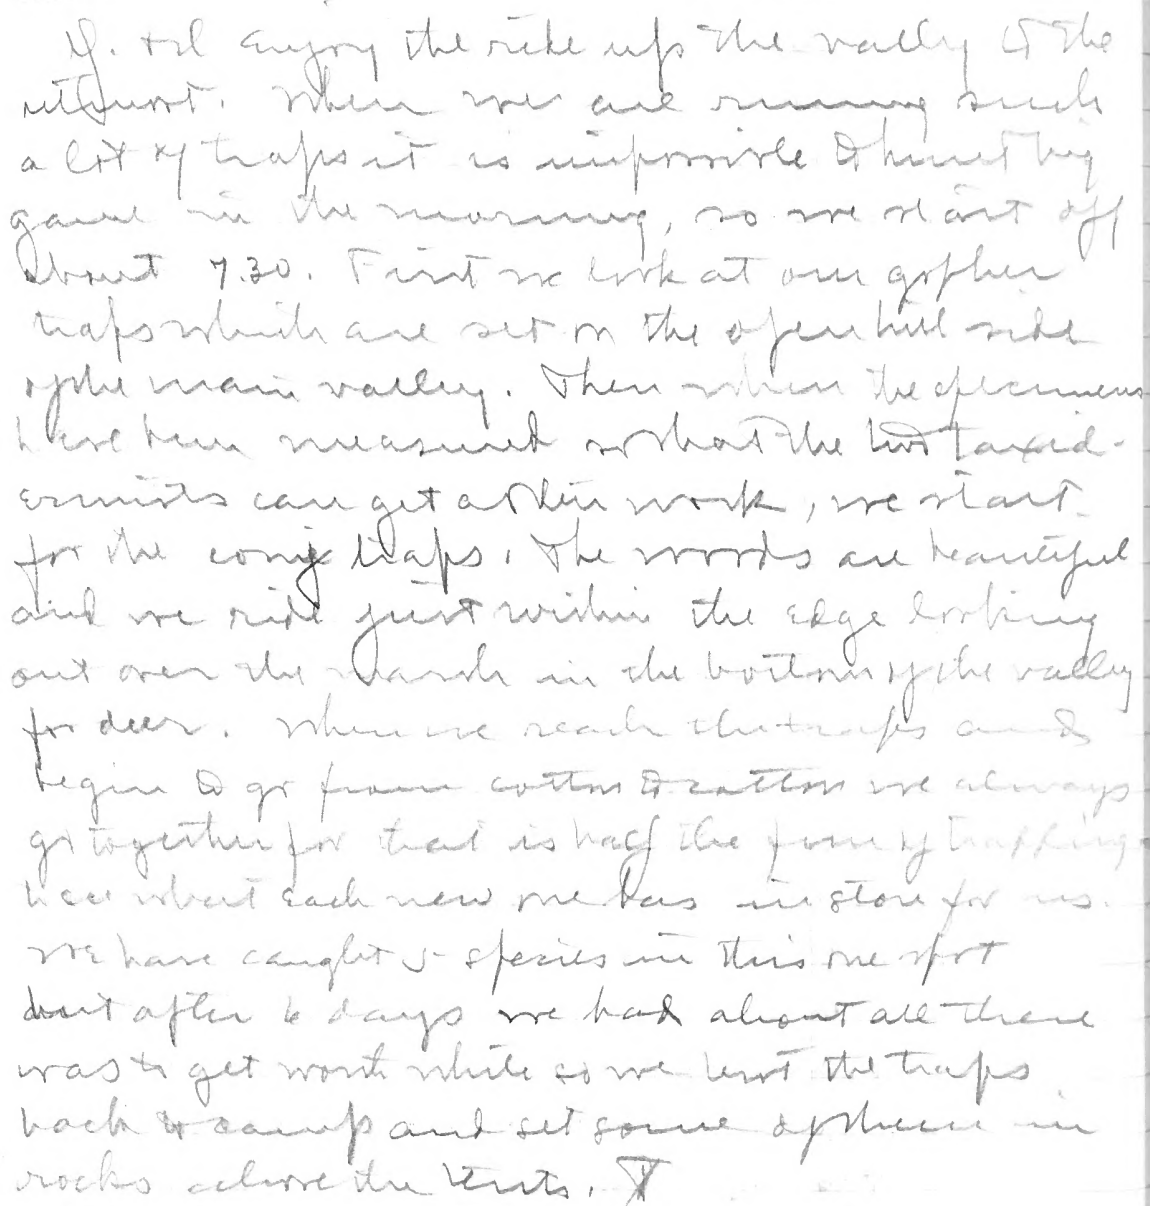 Y. & I enjoy the ride up the valley to the
utmost. When we are running such
a lot of traps it is impossible to hunt big
game in the morning, so we start off
about 7.30. First we look at our gopher
traps which are set on the open hill side
of the main valley. Then when the specimens
have been measured so that the two taxid-
ermists can get at their work, we start
for the cony traps. The woods are beautiful
and we ride just within the edge looking
out over the marsh in the bottom of the valley
for deer. When we reach the traps and
begin to go from cotton to cotton we always
go together for that is half the fun of trapping -
to see what each new one has in store for us.
We have caught 5 species in this one spot
but after 6 days we had about all there
was to get worth while so we the traps
back to camp and set some of them in
rocks above the tents.